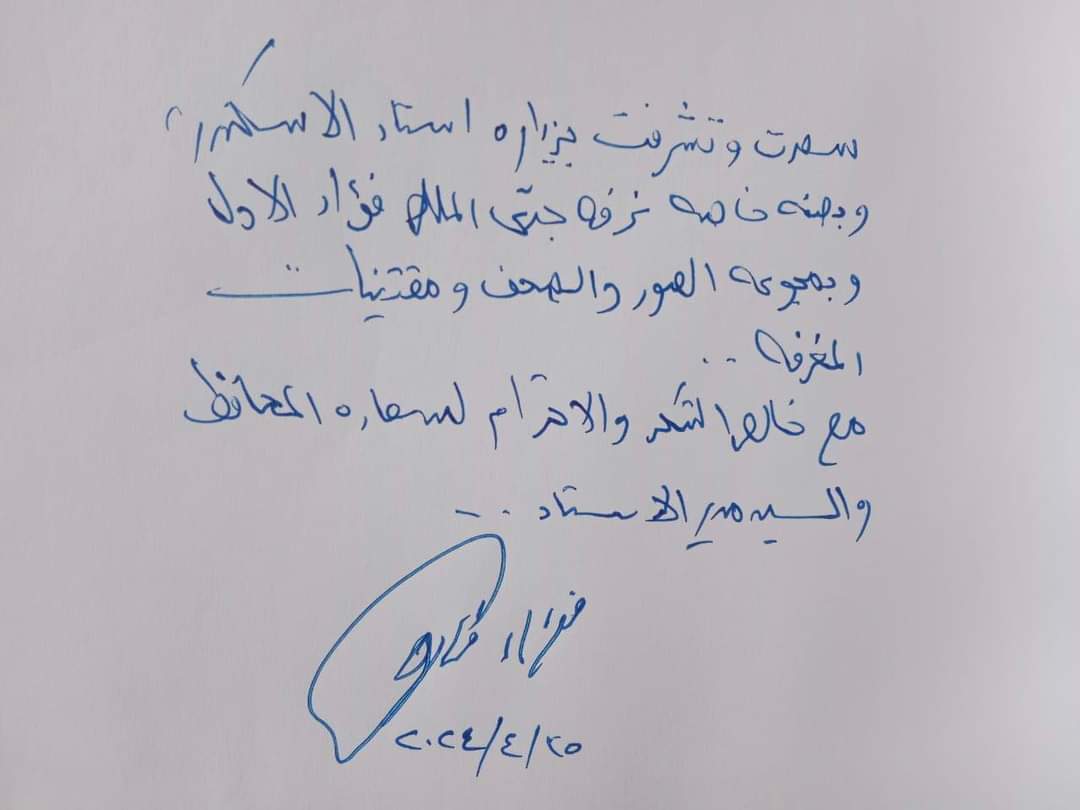 سعدت وتشرفت بزياره استاد الاسكندرية
وبصفه خاصه غرفه جدى الملك فؤاد الاول
وبمجموعه الصور والصحف ومقتنيات
الغرفه ..
مع خالص الشكر والاحترام لسعاده المحافظ
والسيد مدير الاستاد ..
فؤاد فاروق
٢٥/٤/٢٠٢٤